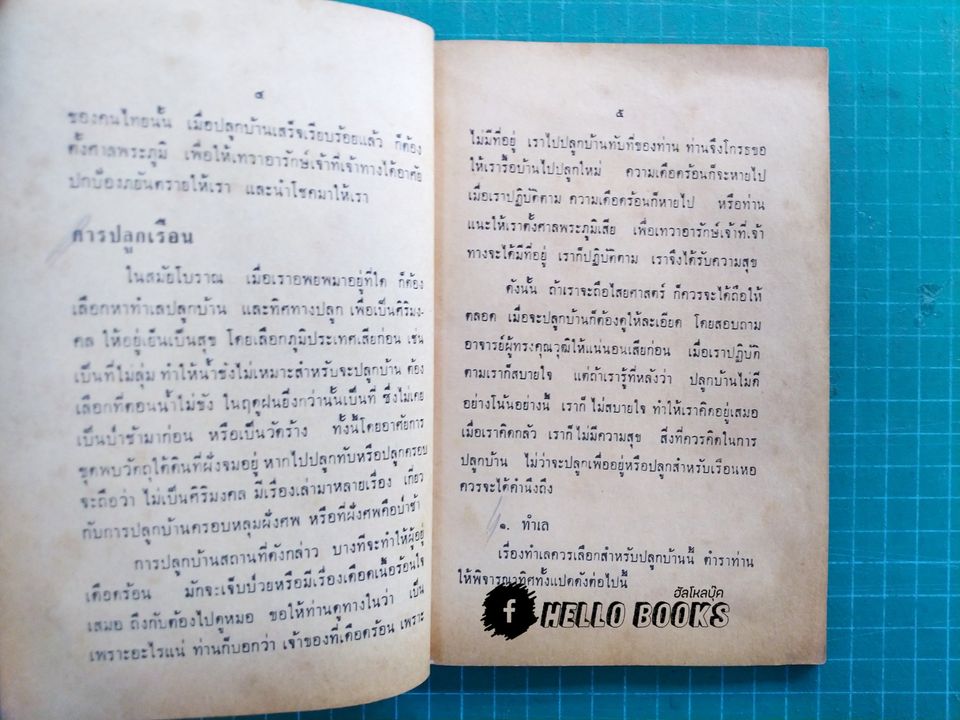 ๔
ของคนไทยนั้น เมื่อปลูกบ้านเสร็จเรียบร้อยแล้ว ก็ต้อง
ตั้งศาลพระภูมิ เพื่อให้เทวาอารักษ์เจ้าที่เจ้าทางได้อาศัย
ปกป้องภยันตรายให้เรา และนำโชคมาให้เรา
การปลูกเรือน
ในสมัยโบราณ เมื่อเราอพยพมาอยู่ที่ใด ก็ต้อง
เลือกหาทำเลปลูกบ้าน และทิศทางปลูก เพื่อเป็นศิริมง-
คล ให้อยู่เย็นเป็นสุข โดยเลือกภูมิประเทศเสียก่อน เช่น
เป็นที่ไม่ลุ่ม ทำให้น้ำขังไม่เหมาะสำหรับจะปลูกบ้าน ต้อง
เลือกที่ดอนน้ำไม่ขัง ในฤดูฝนยิ่งกว่านั้นเป็นที่ ซึ่งไม่เคย
เป็นป่าช้ามาก่อน หรือเป็นวัดร้าง ทั้งนี้โดยอาศัยการ
ขุดพบวัตถุใต้ดินที่ฝังจมอยู่ หากไปปลูกทับหรือปลูกครอบ
จะถือว่า ไม่เป็นศิริมงคล มีเรื่องเล่ามาหลายเรื่อง เกี่ยว
กับการปลูกบ้านครอบหลุมฝังศพ หรือที่ฝังศพคือป่าช้า
การปลูกบ้านสถานที่ดังกล่าว บางทีจะทำให้ผู้อยู่
เดือดร้อน มักจะเจ็บป่วยหรือมีเรื่องเดือดเนื้อร้อนใจ
เสมอ ถึงกับต้องไปดูหมอ ขอให้ท่านดูทางในว่า เป็น
เพราะอะไรแน่ ท่านก็บอกว่า เจ้าของที่เดือดร้อน เพราะ
๕
ไม่มีที่อยู่ เราไปปลูกบ้านทับที่ของท่าน ท่านจึงโกรธขอ
ให้เรารื้อบ้านไปปลูกใหม่ ความเดือดร้อนก็จะหายไป
เมื่อเราปฏิบัติตาม ความเดือดร้อนก็หายไป หรือท่าน
แนะให้เราตั้งศาลพระภูมิเสีย เพื่อเทวาอารักษ์เจ้าที่เจ้า
ทางจะได้มีที่อยู่ เราก็ปฏิบัติตาม เราจึงได้รับความสุข
ดังนั้น ถ้าเราจะถือไสยศาสตร์ ก็ควรจะได้ถือให้
ตลอด เมื่อจะปลูกบ้านก็ต้องดูให้ละเอียด โดยสอบถาม
อาจารย์ผู้ทรงคุณวุฒิให้แน่นอนเสียก่อน เมื่อเราปฏิบัติ
ตามเราก็สบายใจ แต่ถ้าเรารู้ทีหลังว่า ปลูกบ้านไม่ดี
อย่างโน้นอย่างนี้ เราก็ ไม่สบายใจ ทำให้เราคิดอยู่เสมอ
เมื่อเราคิดกลัว เราก็ ไม่มีความสุข สิ่งที่ควรคิดในการ
ปลูกบ้าน ไม่ว่าจะปลูกเพื่ออยู่หรือปลูกสำหรับเรือนหอ
ควรจะได้คำนึงถึง
๑. ทำเล
เรื่องทำเลควรเลือกสำหรับปลูกบ้านนี้ ตำราท่าน
ให้พิจารณาทิศทั้งแปดดังต่อไปนี้
ฮัลโหลบุ๊ค
f HELLO BOOKS